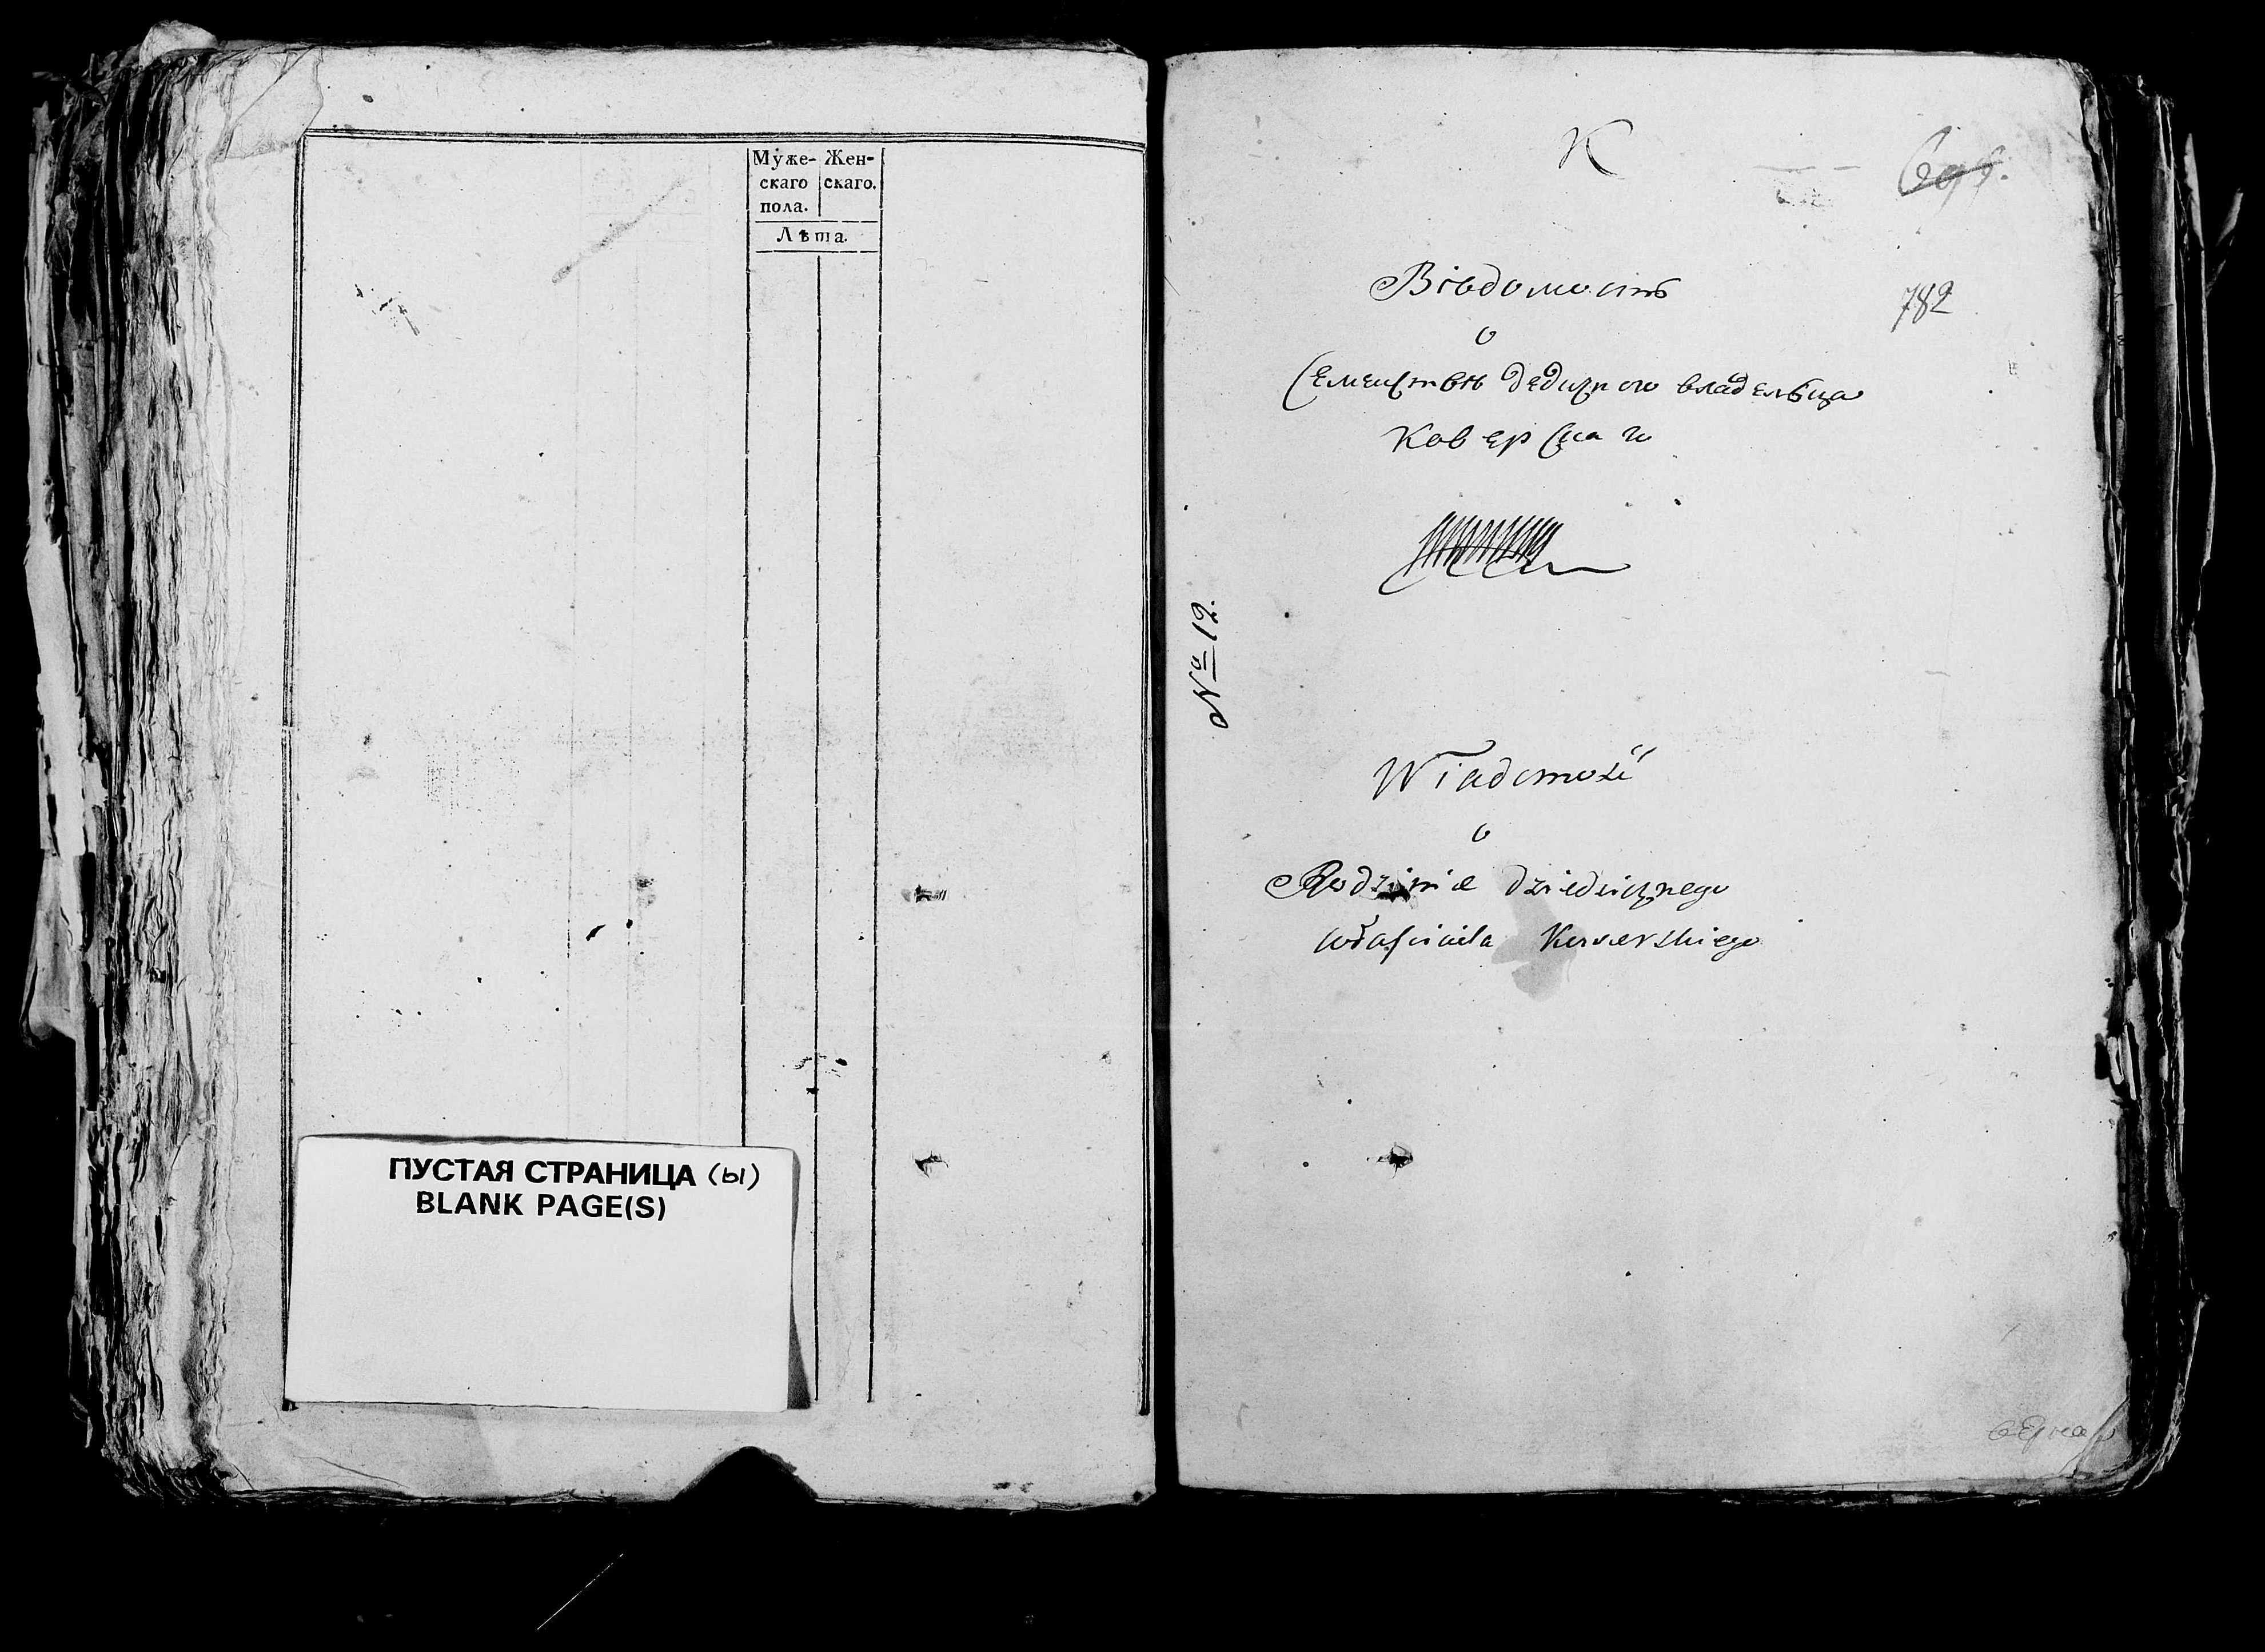 Муже- Жен-
скаго скаго.
пола.
Лѣта.
ПУСТАЯ СТРАНИЦА (ы)
BLANK PAGE(S)
К
782
Віодомость
о
Семенствѣ дедичного владельца
№ 12.
Wiadomość
o
Rodzinie dziedzicznego
właściciela Kowerskiego